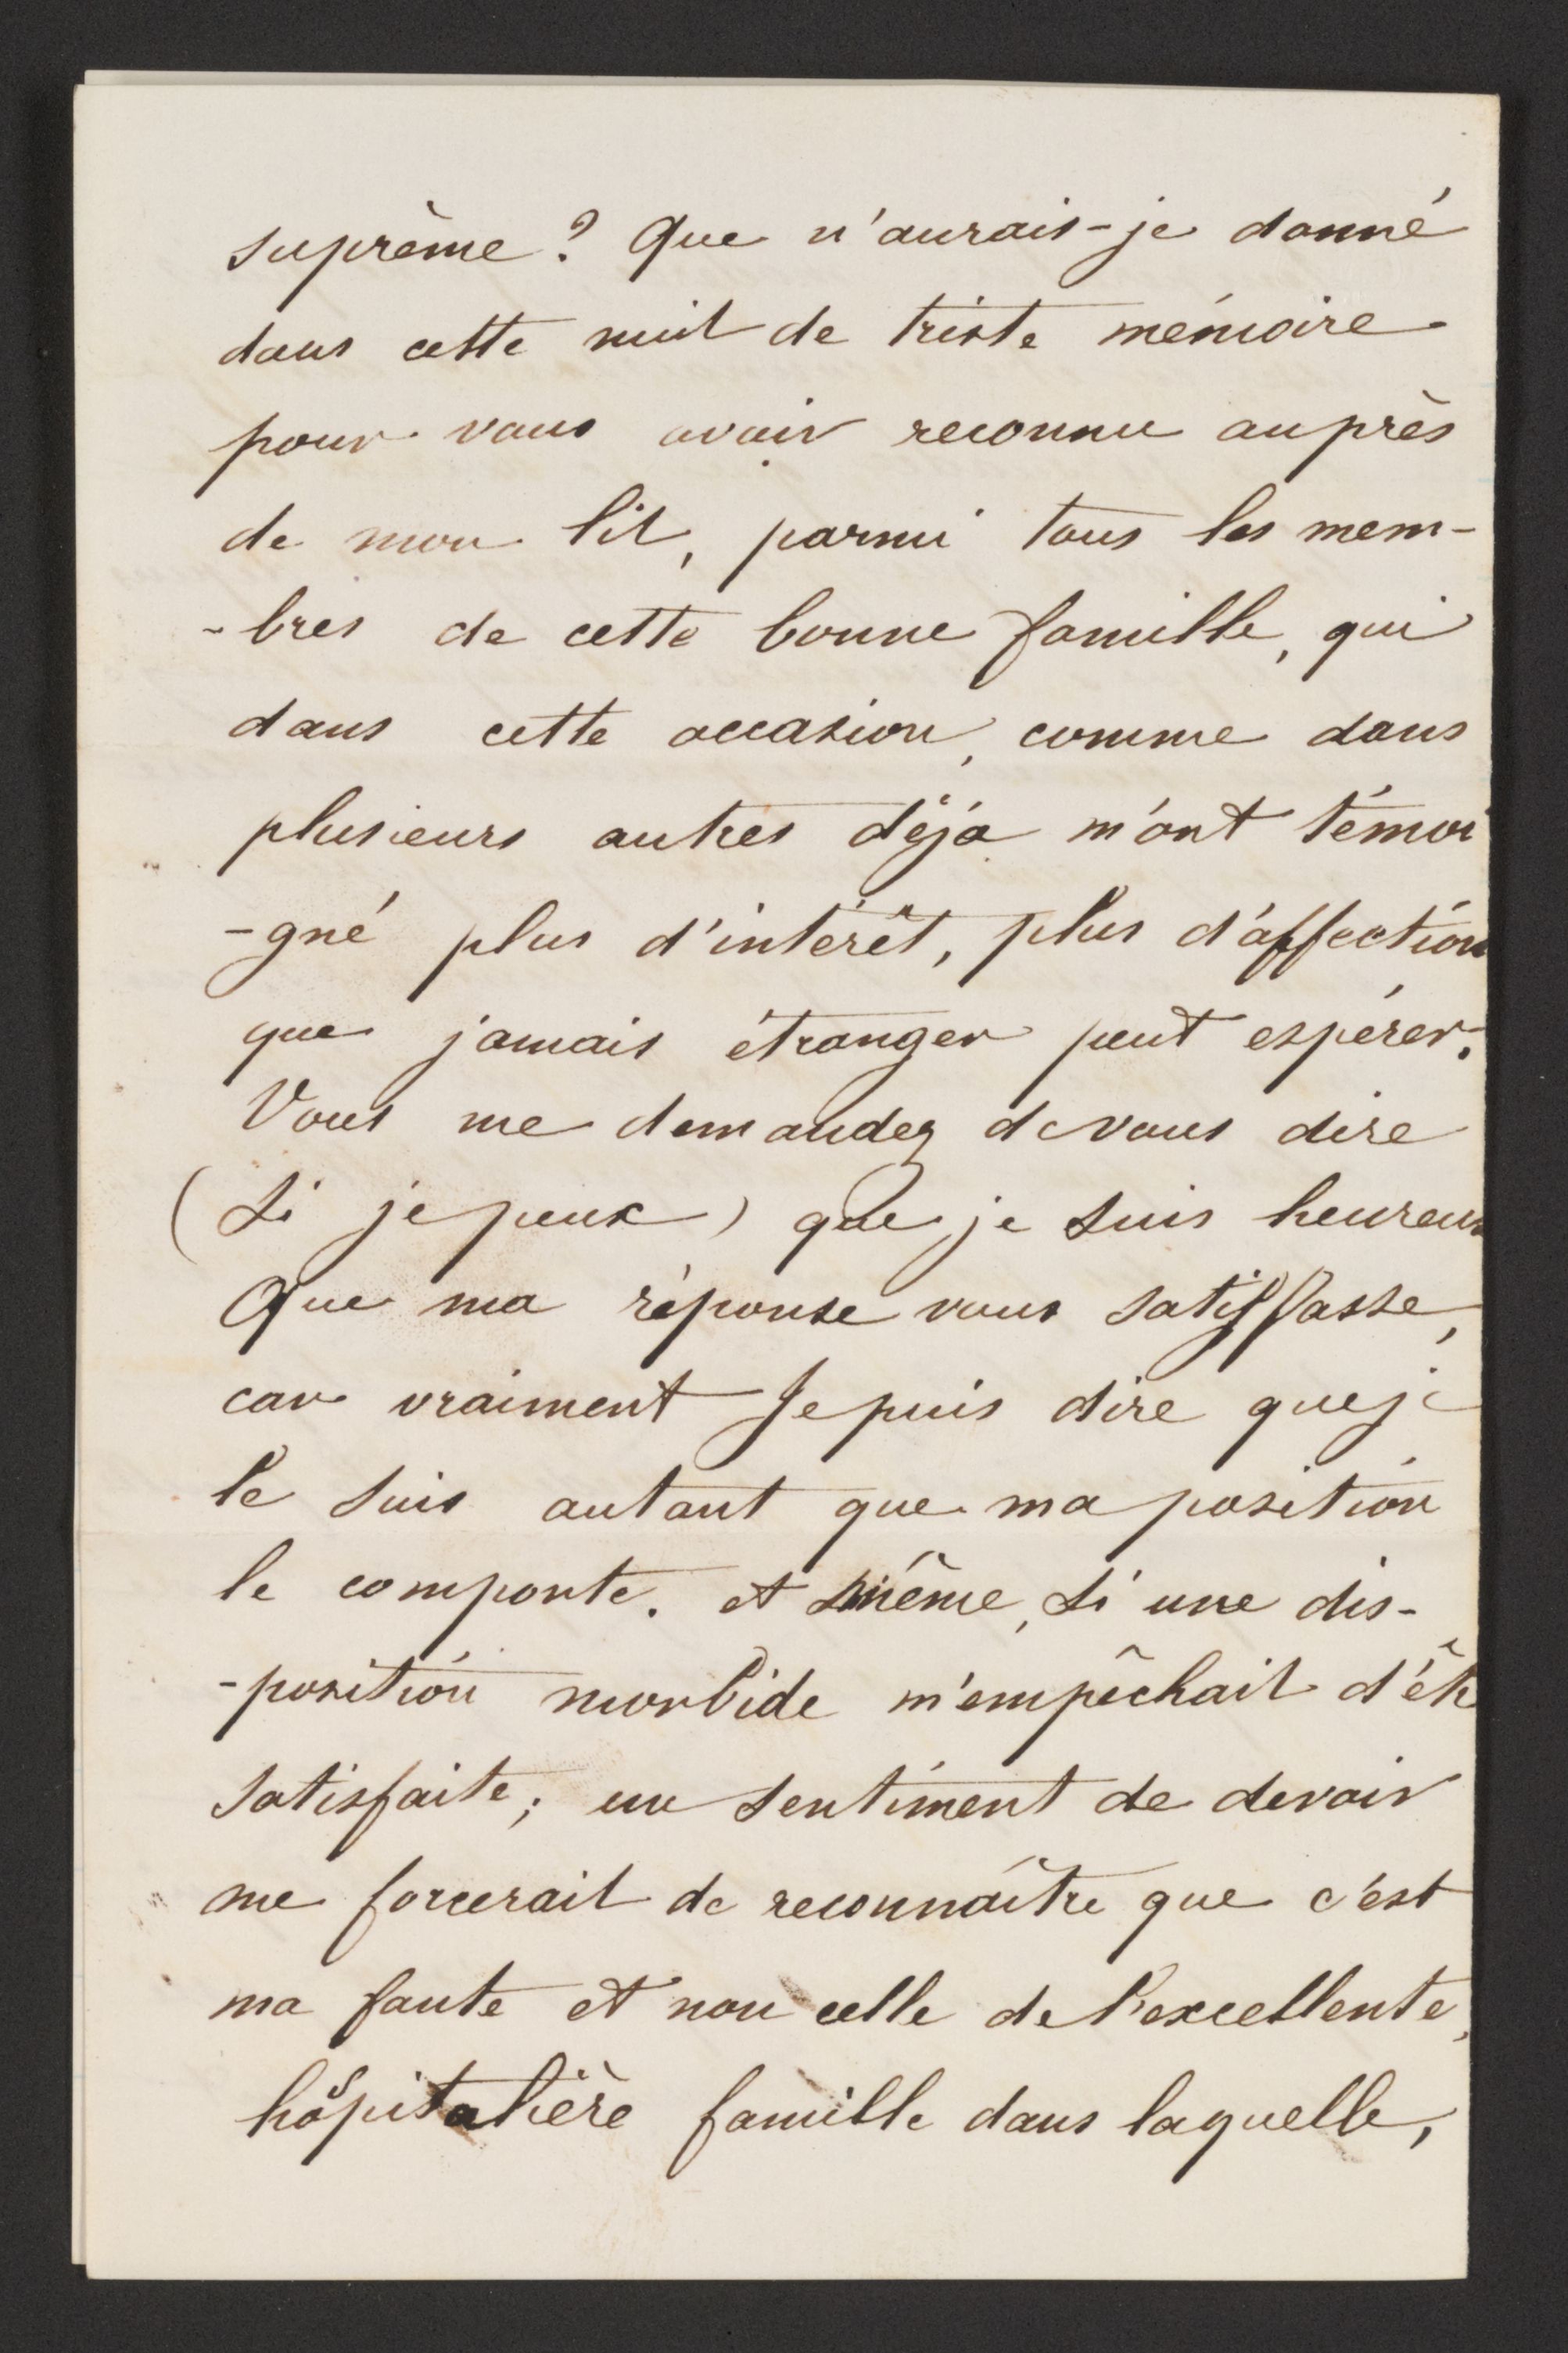 suprême? Que n'aurais-je donné
dans cette nuit de triste mémoire
pour vous avoir reconnu auprès
de mon lit, parmi tous les mem-
-bres de cette bonne famille, qui
dans cette occasion, comme dans
plusieurs autres déjà m'ont témoi
-gné plus d'intérêt, plus d'affection
que jamais étranger peut espérer.
Vous me demandez de vous dire
(si je peux) que je suis heureux
Que ma réponse vous satisfasse,
car vraiment Je puis dire que je
le suis autant que ma position
le comporte. et même, si une dis-
-position morbide m'empêchait d'êt
satisfaite; un sentiment de devoir
me forcerait de reconnaître que c'est
ma faute et non celle de l'excellente,
hôpitalière famille dans laquelle,